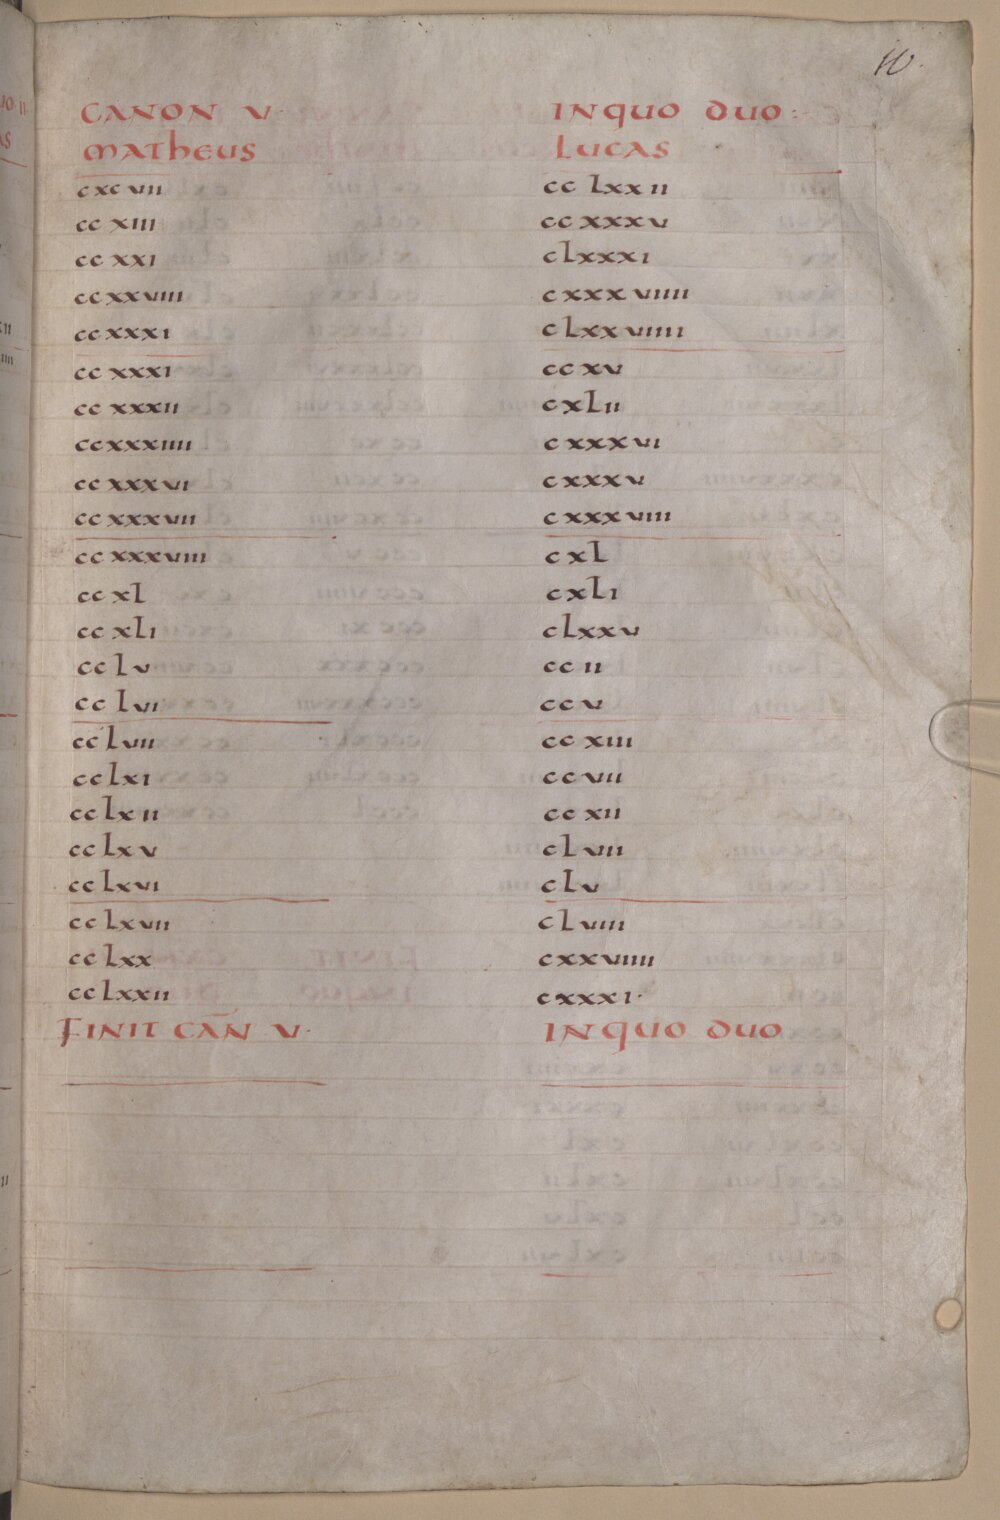 10.
CANON V INQUO DUO
MATHEUS LUCAS
cxcvii cclxxii
ccxiii ccxxxv
ccxxi clxxxi
ccxxviiii cxxxviiii
ccxxxi clxxviiii
ccxxxi ccxv
ccxxxii cxlii
ccxxxiiii cxxxvi
ccxxxvi cxxxv
ccxxxvii cxxxviii
ccxxxviii cxl
ccxl cxli
ccxli clxxv
cclv ccii
cclvi ccv
cclvii ccxiii
cclxi ccvii
cclxii ccxii
cclxv clvii
cclxvi clv
cclxvii clviii
cclxx cxxviiii
cclxxii cxxxi·
FINIT CAN̄ V· INQUO DUO